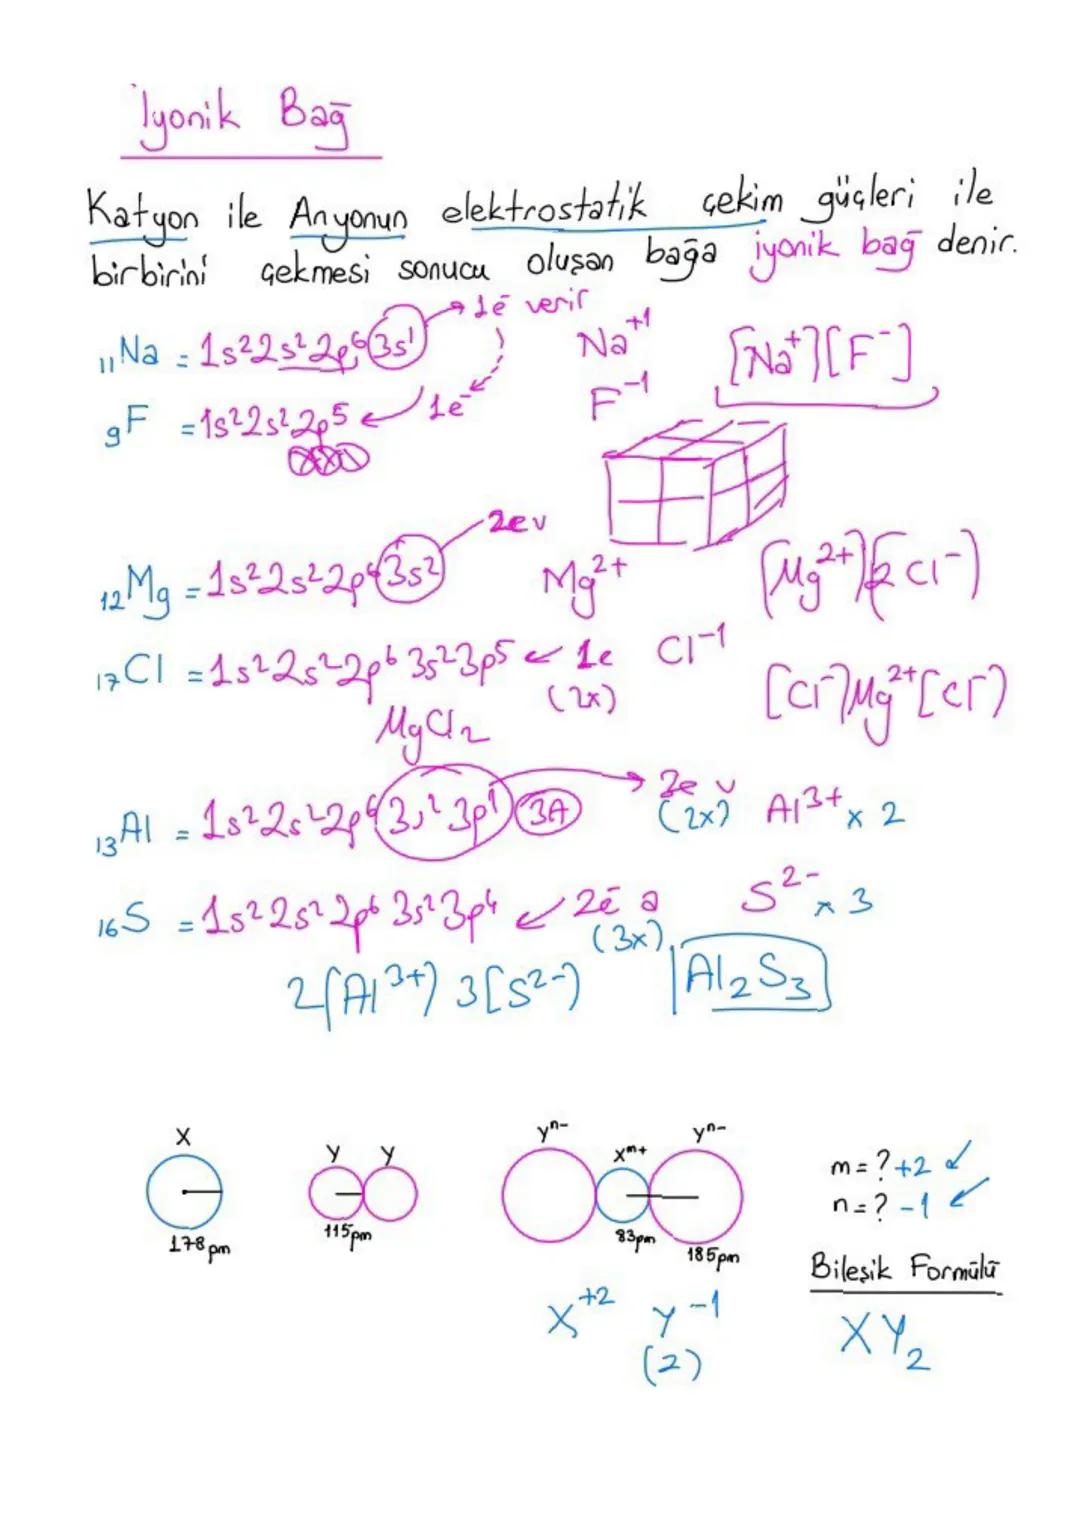 İyonik Bağ
Katyon ile Anyonun elektrostatik çekim güçleri ile
birbirini çekmesi sonucu oluşan bağa iyonik bağ denir.
₁₁Na = 1s²2s²2p⁶3s¹ → 1ē verir Na⁺¹ [Na⁺][F⁻]
₉F = 1s²2s²2p⁵ ← 1e⁻ F⁻¹
₁₂Mg = 1s²2s²2p⁶3s² 2ev Mg²⁺ [Mg²⁺][2Cl⁻]
₁₇Cl = 1s²2s²2p⁶3s²3p⁵ ← 1e Cl⁻¹
(2x) [Cl⁻]Mg²⁺[Cl⁻]
MgCl₂
₁₃Al = 1s²2s²2p⁶3s²3p¹ 3A → 3e v Al³⁺ x 2
(2x)
₁₆S = 1s²2s²2p⁶3s²3p⁴ ← 2ē a S²⁻ x 3
(3x)
2[Al³⁺] 3[S²⁻] Al₂S₃
X Y Y Yⁿ⁻ Xᵐ⁺ Yⁿ⁻
178pm 115pm 83pm 185pm
m = ? +2
n = ? -1
Bileşik Formülü
X⁺² Y⁻¹ XY₂
(2)